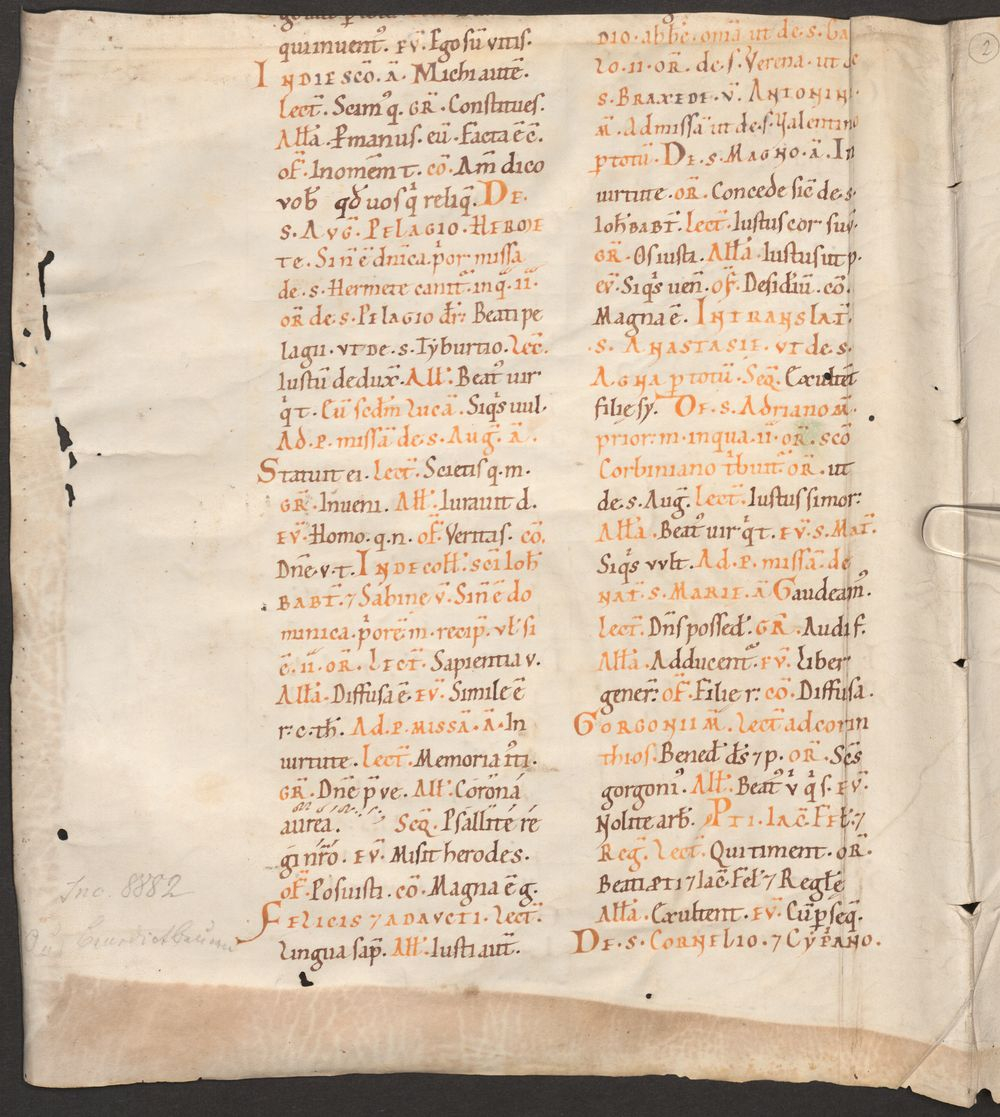 qui inuent᷒. EV̄. Ego sū vitis.
IN DIE SC̄O. Ā. Michi autē.
lect̄. Scim᷒ q. GR̄. Constitues.
All̄a. P manus. eū. Facta ē c̄.
of̄. In omēm t. cō. Am̄ dico
vob̄ qđ uos q̇ reliq̄. DE.
S. AVḠ. PELAGIO. HERME
TE. Sin̄ ē dn̄ica. p̓or missa
de. s. Hermete canit̄. in q. ii.
OR̄ de s. PELAGIO dr̄: Beati pe
lagii. VT DE. s. Tyburtio. lec̄.
Iustū dedux̄. All̄. Beat᷒ uir
q̇ t. Cū sc̄dm lucā. Siq̓s uul.
Ad. P. missā de. s. Auḡ. ā.
Statuit ei. lect̄. Scietis q. m.
GR̄. Inueni. All̄. Iurauit d.
EV̄. Homo. q. n. of̄. Veritas. cō.
Dn̄e. v. t. IN DECOLL̄. sc̄i Ioh̄
BABT̄. ⁊ Sabine v̄. Sin̄ ē do
minica. p̓or ē m̄. recip̄. vl̄ si
ē. ii. OR̄. LECT̄. Sapientia v.
All̄a. Diffusa ē. EV̄. Simile ē
r. c. th̄. Ad. P. MISSĀ. Ā. In
uirtute. lect̄. Memoria i̓ti.
GR̄. Dn̄e p̄ ve. All̄. Corona
aurea. Seq̄. Psallite re
gi nr̄o. EV̄. Misit herodes.
of̄. Posuisti. cō. Magna ē g.
FELICIS ⁊ ADAVCTI. lect̄.
lingua sap̄. All̄. Iusti aut̄.
DIO. abb̄e. om̄a ut de. s. Ga
lo. ii. OR̄. de. s. Verena. ut de
S. BRAXEDE. V̄. ANTONIN
M̄. Ad missā ut de. s. Valentino
p totū. DE. S. MAGNO. Ā. In
uirtute. OR̄. Concede sic̄ de. s.
Ioh̄ BABT̄. lect̄. Iustus cor suū.
GR̄. Os iusti. All̄a. Iustus ut p.
ev̄. Siq̓s uen̄. of̄. Desid̓iū. cō.
Magna ē. IN TRANSLAT̄.
S. ANASTASIE. VT de. s.
AGNA p totū. Seq̄. Exultēt
filię sy. DE. S. Adriano M̄.
prior. m̄. in qua. ii. OR̄. sc̄o
Corbiniano t̓buit̄. OR̄. ut
de. s. Auḡ. lect̄. Iustus si mor:
All̄a. Beat᷒ uir q̇ t. EV̄. S. Mat̄.
Siq̓s vvlt. Ad. P. missā. de
NAT̄. S. MARIE. Ā Gaudeam᷒.
lect̄. Dn̄s possed̄. GR̄. Audi f.
All̄a. Adducent᷒. EV̄. liber
gener̄: of̄. Filie r: cō. Diffusa.
GORGONII M̄. lect̄ ad corin
thios. Bened̄ d̄s ⁊ p. OR̄. Sc̄s
gorgoni᷒. All̄. Beat᷒ v̇ q̇ s. EV̄.
Nolite arb̄. PTI. IAC̄. FEL̄. ⁊
Reḡ. lect̄. Qui timent. OR̄.
Beati PTI ⁊ Iac̄. Fel̄ ⁊ Regl̄ę
All̄a. Exultent. EV̄. Cū p̄seq̄.
DE. S. CORNELIO. ⁊ CYP̓ANO.
2
Inc. 8882
Benedictbeuern